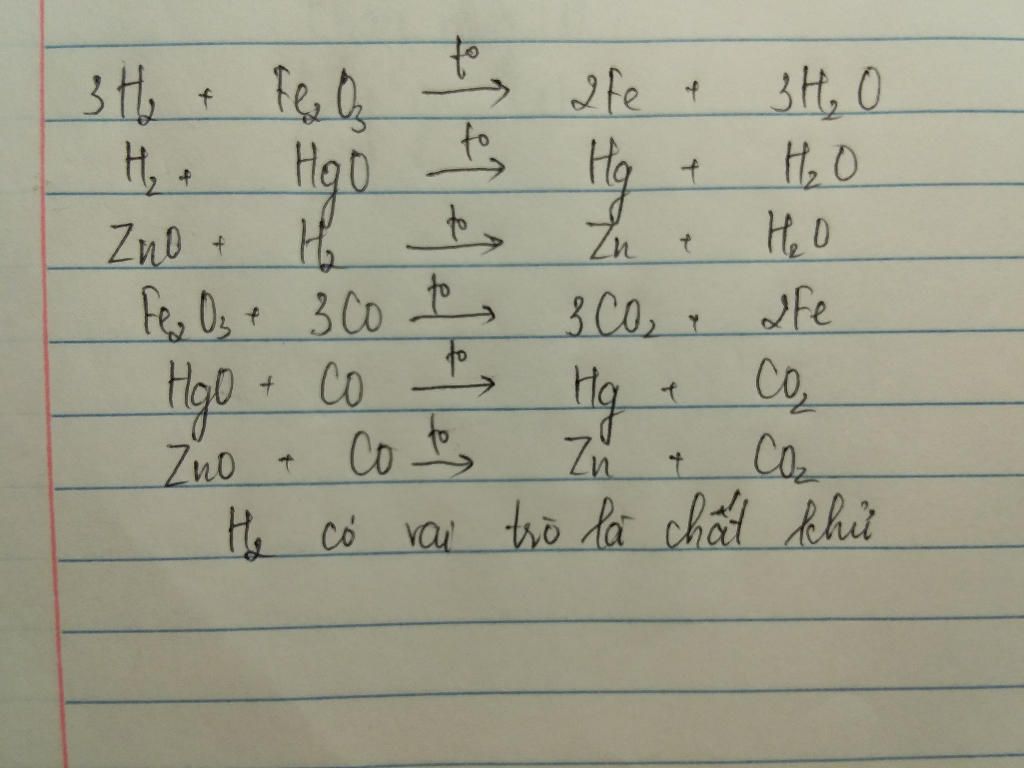 3H₂ + Fe₂O₃ —t°→ 2Fe + 3H₂O
H₂ + HgO —t°→ Hg + H₂O
ZnO + H₂ —t°→ Zn + H₂O
Fe₂O₃ + 3CO —t°→ 3CO₂ + 2Fe
HgO + CO —t°→ Hg + CO₂
ZnO + CO —t°→ Zn + CO₂
H₂ có vai trò là chất khử